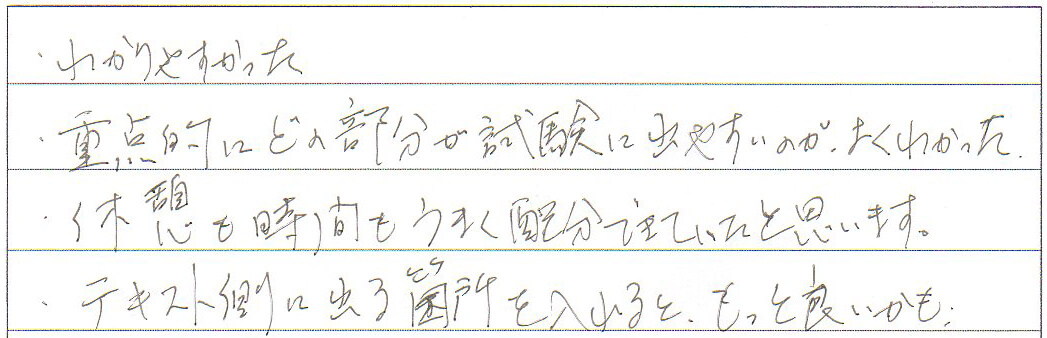 ・わかりやすかった
・重点的にどの部分が試験に出やすいのか、よくわかった.
・休憩も時間もうまく配分できていたと思います。
・テキスト側に出る箇所を入れると、もっと良いかも.